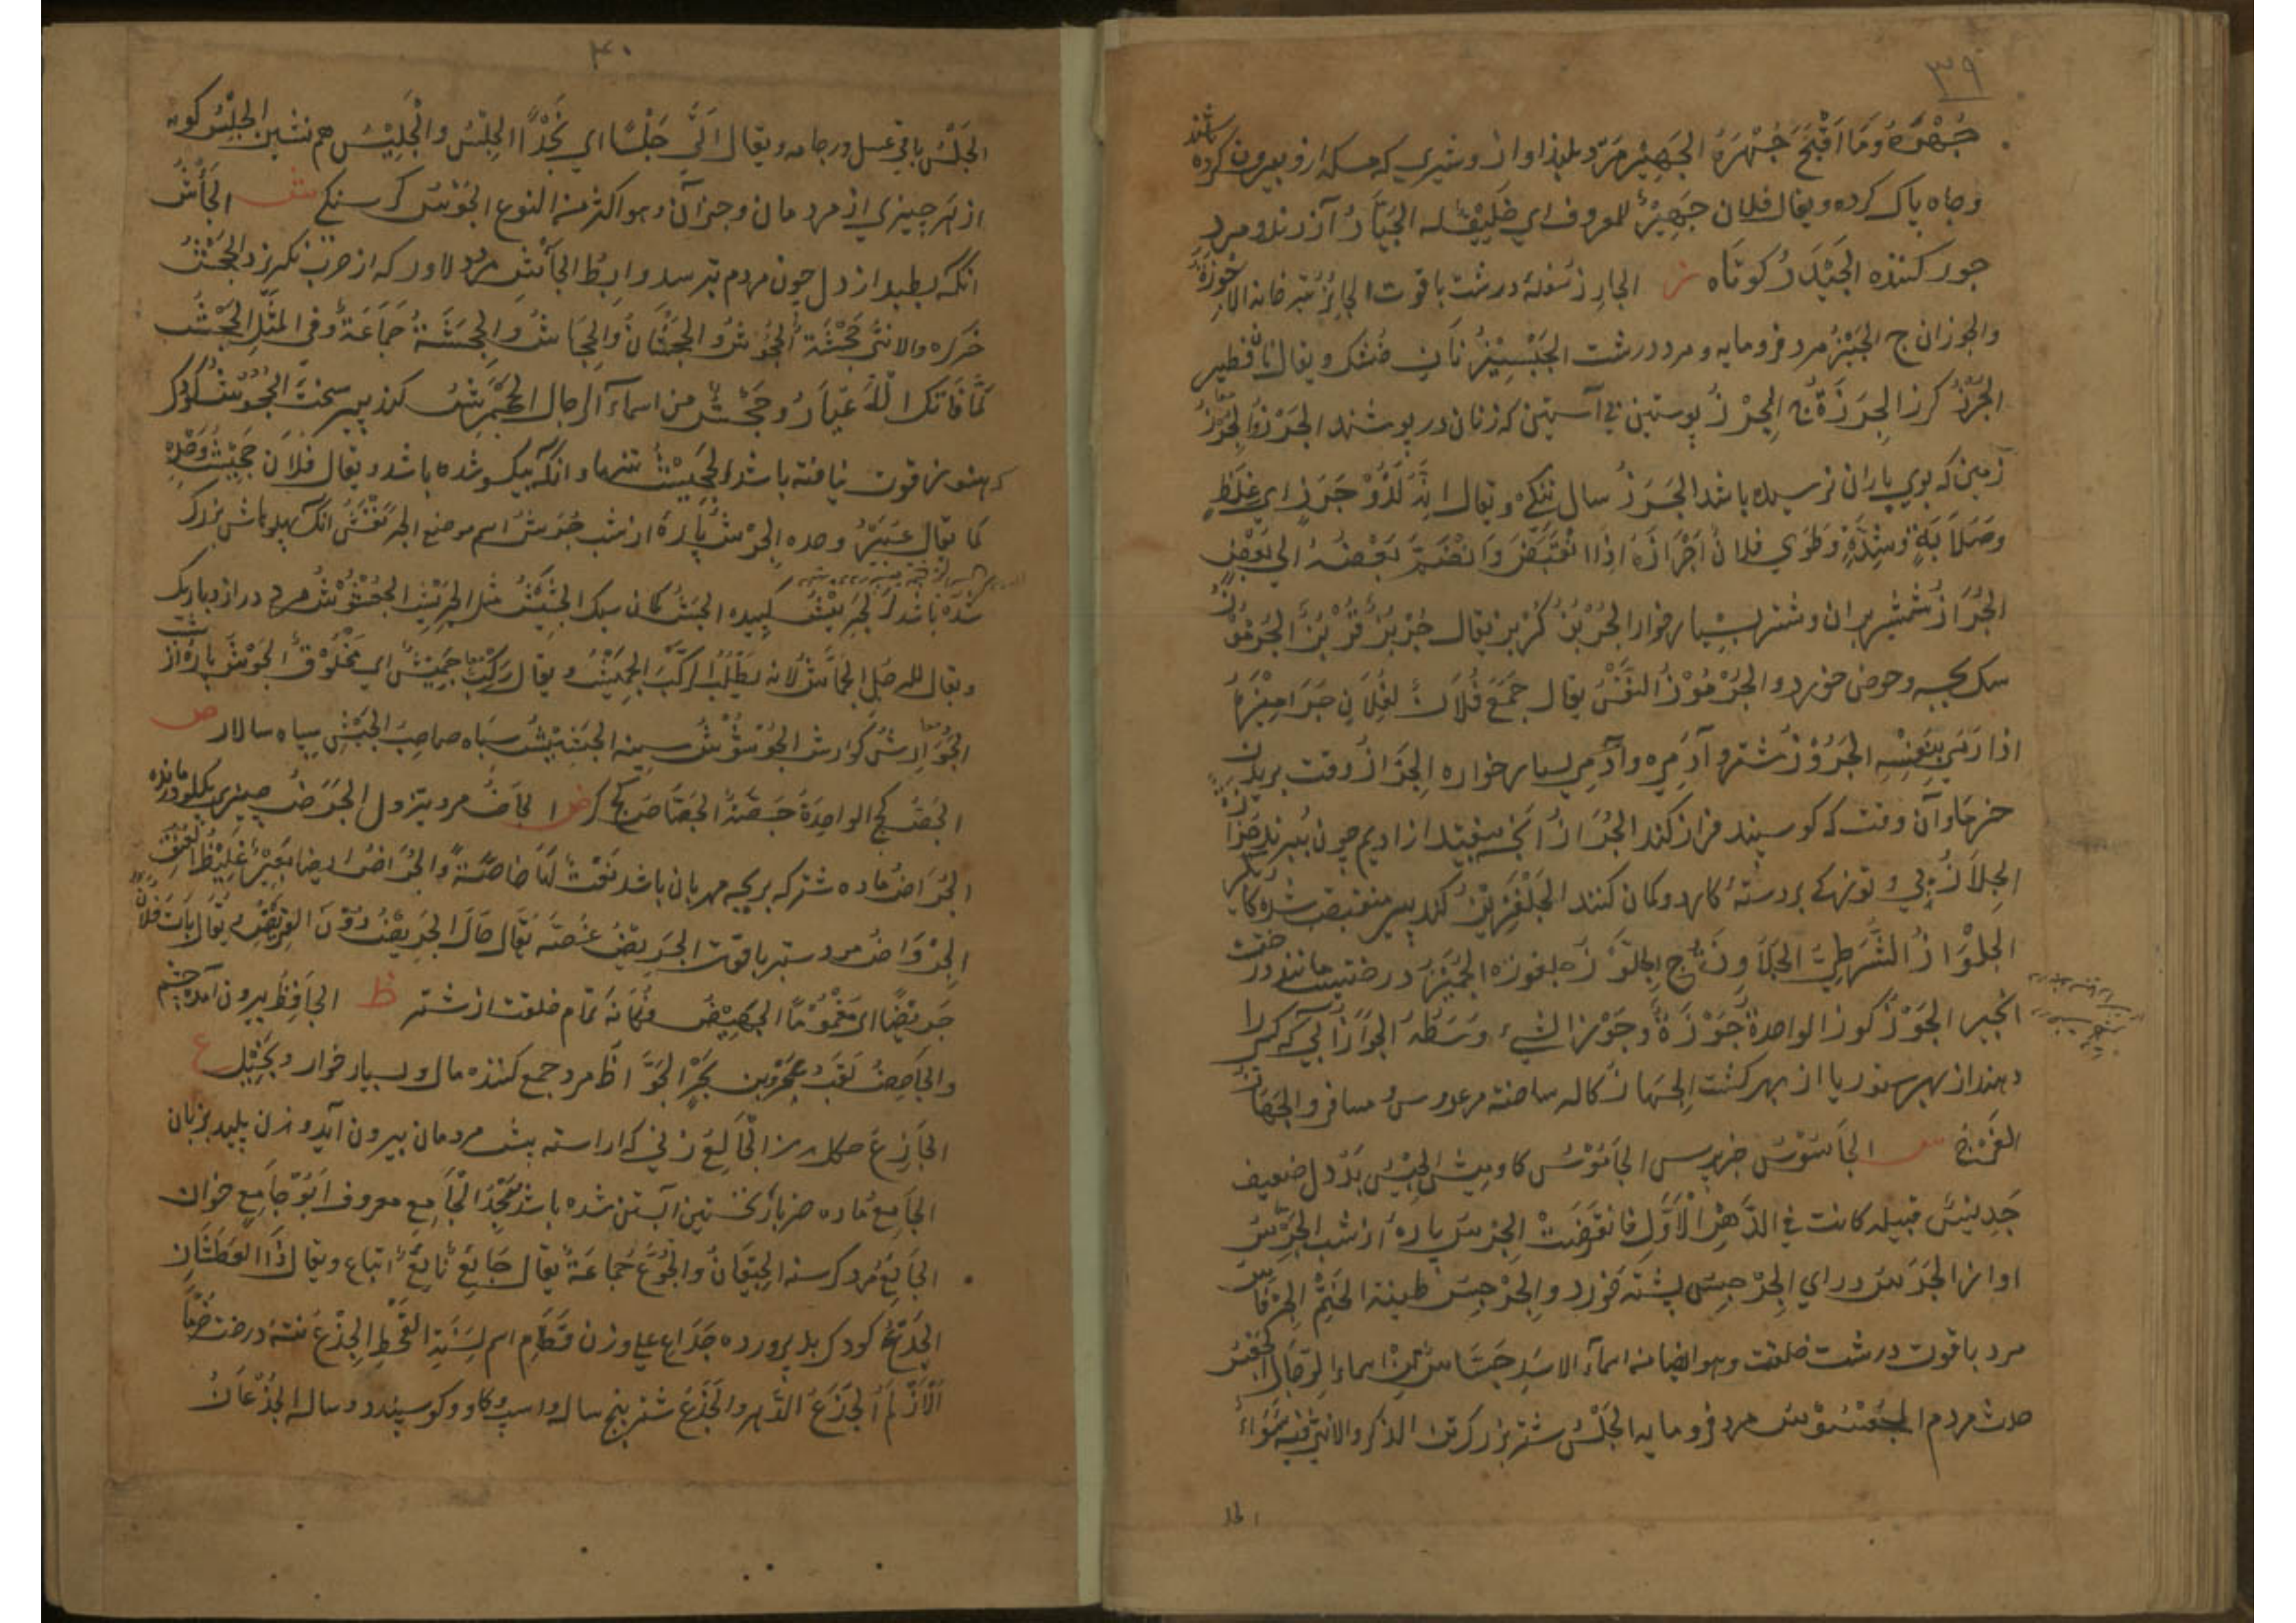 ٣٩
جُهْرَهُ وَمَا اَقْبَحَ جُهْرَهُ الجَهِيْر مرد بلند اواز و شيري كه مسكه ازو بيرون كرده باشند
وچاه پاك كرده ويقال فلان جَهِيْرٌ للمعروف اي خَلِيْقٌ له الجَيَّارُ آزردند و مرد
جور كننده الجَيْدَرُ كوتاه ز الجارِزُ سُرفهٔ درشت باقوت الجائِزُ تير خانه الاَجْوِزَةُ
والجوزان ج الجِبْزُ مرد فرومايه و مرد درشت الجَبِيْزُ نان خشك ويقال نان فطير
الجُرْزُ كرز الجِرَزَةُ ج الجِرْزُ پوستين بي آستين كه زنان در پوشند الجُرُزُ والجُرْزُ
زمين كه بوي باران نرسيده باشد الجَرَزُ سال تنگ ويقال اِنَّهُ لَذُوْ جَرَزٍ اي غِلَظٍ
وصَلاَبَةٍ وشِدَّةٍ وطَوَي فلانٌ اَجْرَازَهُ اِذَا تَقَبَّضَ وَانْضَمَّ بَعْضُهُ الي بَعْضٍ
الجُرَازُ شمشير بران و شتر بسيار خوار الجُرْبُزُ كُرْبز يقال جُرْبُزٌ قُرْبُزٌ الجُرْمُوْزُ
سك بچه وحوض خورد والجُرْمُوْزُ النَفْسُ يقال جَمَعَ فُلاَنٌ لِفُلاَنٍ جَرَامِيْزَهُ
اذا رَمَي بِنَفْسِهِ الجَرُوْزُ شتر و آدمي بسيار خواره الجَزَازُ وقت بريدن
خرما وآن وقت كه كوسپند فراز كند الجُزَازُ انچه بيفتد از اديم چون ببرند
الجِلاَزُ پي و توزي كه بر دستهٔ كارد وكمان كنند الجَلْفَزِيْزُ كنده پير متقبض شده
الجِلْوَازُ الشُرَطِيّ الجَلاَوِزَةُ ج الجِلَّوْزُ بلغوزه الجُمَّيْزُ درختيست مانند درخت
انجير الجَوْزُ كوز الواحدة جَوْزَةٌ وجَوْزُ الشيء وَسَطُهُ الجَوَازُ آبي كه كسي را
دهند از بهر ستور يا از بهر كشت الجَهَازُ كاله ساخته مر عروس و مسافر والجَهَازُ
الفَرْج س الجاسُوْسُ خبرپرس الجامُوْسُ كاوميش الجِبْسُ بد دل ضعيف
جَدِيْسُ قبيله كانت في الدَّهْرِ الاَوَّلِ فَانقَرَضَتْ الجَرْسُ پارهٔ از شب الجَرْسُ
اواز الجَرَسُ دراي الجِرْجِسُ پشته خورد والجِرْجِسُ طينة الخَتْم الجِرْفاسُ
مرد باقوت درشت خلقت وهو ايضا من اسماء الاسَدِ جَسَّاسٌ مِنْ اسماء الرجال الجَعْسُ
حدث مردم الجُعْسُوْسُ مرد فرومايه الجَلْسُ شتر بزركتن الذكر والانثي فيه سَوَاءٌ
الجلـ
٤٠
الجَلْسُ باقي عسل در جامه ويقال اَتَي جَلْسًا اي نَجْدًا الجِلْسُ والجَلِيْسُ هم نشين الجِنْسُ كونه
از هر چيزي از مردمان وجزآن وهو اكثر من النوع الجَوْسُ كرسنگي ش الجَأْشُ
انكه بطپد از دل چون مردم بترسد ورابِطُ الجَأْشِ مرد دلاور كه از حرب نگريزد الجَحْشُ
خركره والانثَي جَحْشَةٌ الجُحُوْشُ والجِحْشَانُ والجِحَاشُ والجِحَشَةُ جَمَاعَةٌ وفي المَثَلِ الجَحْشَ
لَمَّا فَاتَكَ الاَعْيَارُ وجَحْشٌ من اسماء الرجال الجَحْمَرِشُ كنده پير سخت الجُحُوْشُ كودك
كه هنوز قوت نيافته باشد الجَحِيْشُ تنها وانكه بيكسو شده باشد ويقال فُلاَن جُحَيْشُ وَحْدِهِ
كما يقال عُيَيْرُ وحده الجَرْشُ پارهٔ از شب جُرَشُ اسم موضع الجَرَنْفَشُ انكه پهلوهاش بزرك
شده باشد الجَرِيْشُ كبيده الجَشْءُ كمان سبك الجَشِيْشُ مثل الجَرِيْشِ الجُعْشُوْشُ مرد دراز باريك
ويقال للرجل الجَمَّاشُ لانه يَطْلُبُ الرَكَبَ الجَمِيْشَ ويقال رَكَبٌ جَمِيْشٌ اي مَحْلُوْقٌ الجَوْشُ پارهٔ از شب
الجُوَارِشُ كوارش الجُؤْشُوْشُ سينه الجَيْشُ سپاه صاحب الجَيْشِ سپاه سالار ص
الجَصُّ كچ الواحِدَةُ جَصَّةٌ الجَصَّاصُ كچ كر ض الجاضُّ مرد تيزدل الجَرَضُ چيزي بكلو درمانده
الجُرَاضُ ماده شتر كه بر بچه مهربان باشد نَعْتٌ لَهَا خاصَّةً والجُرَاضُ ايضا بَعِيْرٌ غَلِيْظُ العُنُقِ
الجِرْوَاضُ مرد ستبر باقوت الجَرِيْضُ غُصَّه يقال حَالَ الجَرِيْضُ دُوْنَ القَرِيْضِ ويقال باتَ فُلانٌ
جَرِيْضًا اي مَغْمُوْمًا الجَهِيْضُ بچهٔ ناتمام خلقت از شتر ظ الجَاحِظُ بيرون آمده چشم
والجَاحِظُ لَقَبُ عَمْرِو بن بَحْرٍ الجَوَّاظُ مرد جمع كننده مال و بسيار خوار و بخيل ع
الجَازِعُ حكل رز الجَالِعُ زني كه اراسته پيش مردمان بيرون آيد و زن پليد زبان
الجَامِعُ ماده خر باز نخستين آبستن شده باشد مَسْجِدُ الْجَامِعِ معروف اَبُوْجَامِعٍ خوان
الجَائِعُ مرد كرسنه الجِيْعَانُ والجُوَّعُ جَماعَةٌ يقال جَائِعٌ نَائِعٌ اتباع ويقال ذَا العَطْشَانِ
الجَدِعُ كودك بد پرورده جَدَاعِ علي وزن قَطَامِ اسم لسَنَةِ القَحْطِ الجِذْعُ تنهٔ درخت خرما
الاَزْلَمُ الجَذَعُ الدَهر والجَذَعُ شتر پنج ساله واسپ وكاو وكوسپند دو ساله الجُذْعَانُ